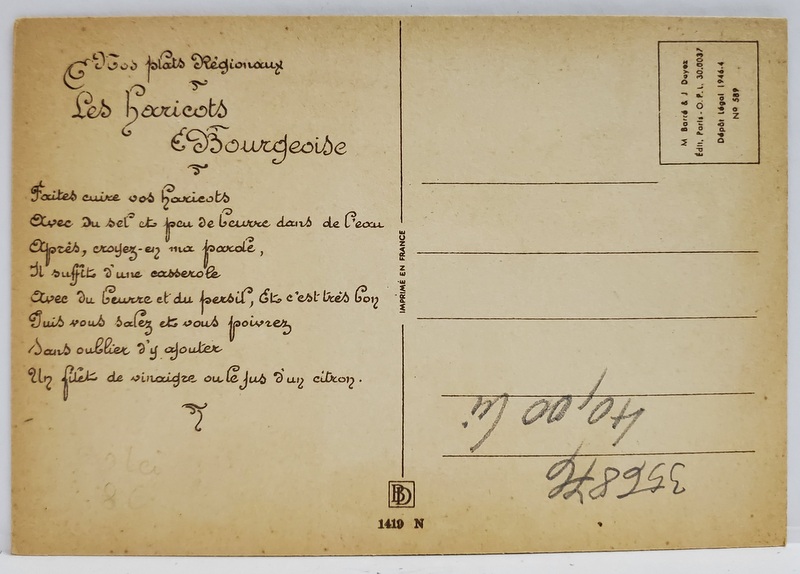 Nos plats Régionaux
Les haricots
Bourgeoise
Faites cuire vos haricots
Avec du sel et peu de beurre dans de l'eau
Après, croyez-en ma parole,
Il suffit d'une casserole
Avec du beurre et du persil, Et c'est très bon
Puis vous salez et vous poivrez
Sans oublier d'y ajouter
Un filet de vinaigre ou le jus d'un citron.
IMPRIMÉ EN FRANCE
M Barré & J Dayez
Édit. Paris - O.P.L. 30.0037
Dépôt Légal 1946-4
Nº 589
40,00 lei
356876
BD
1419 N